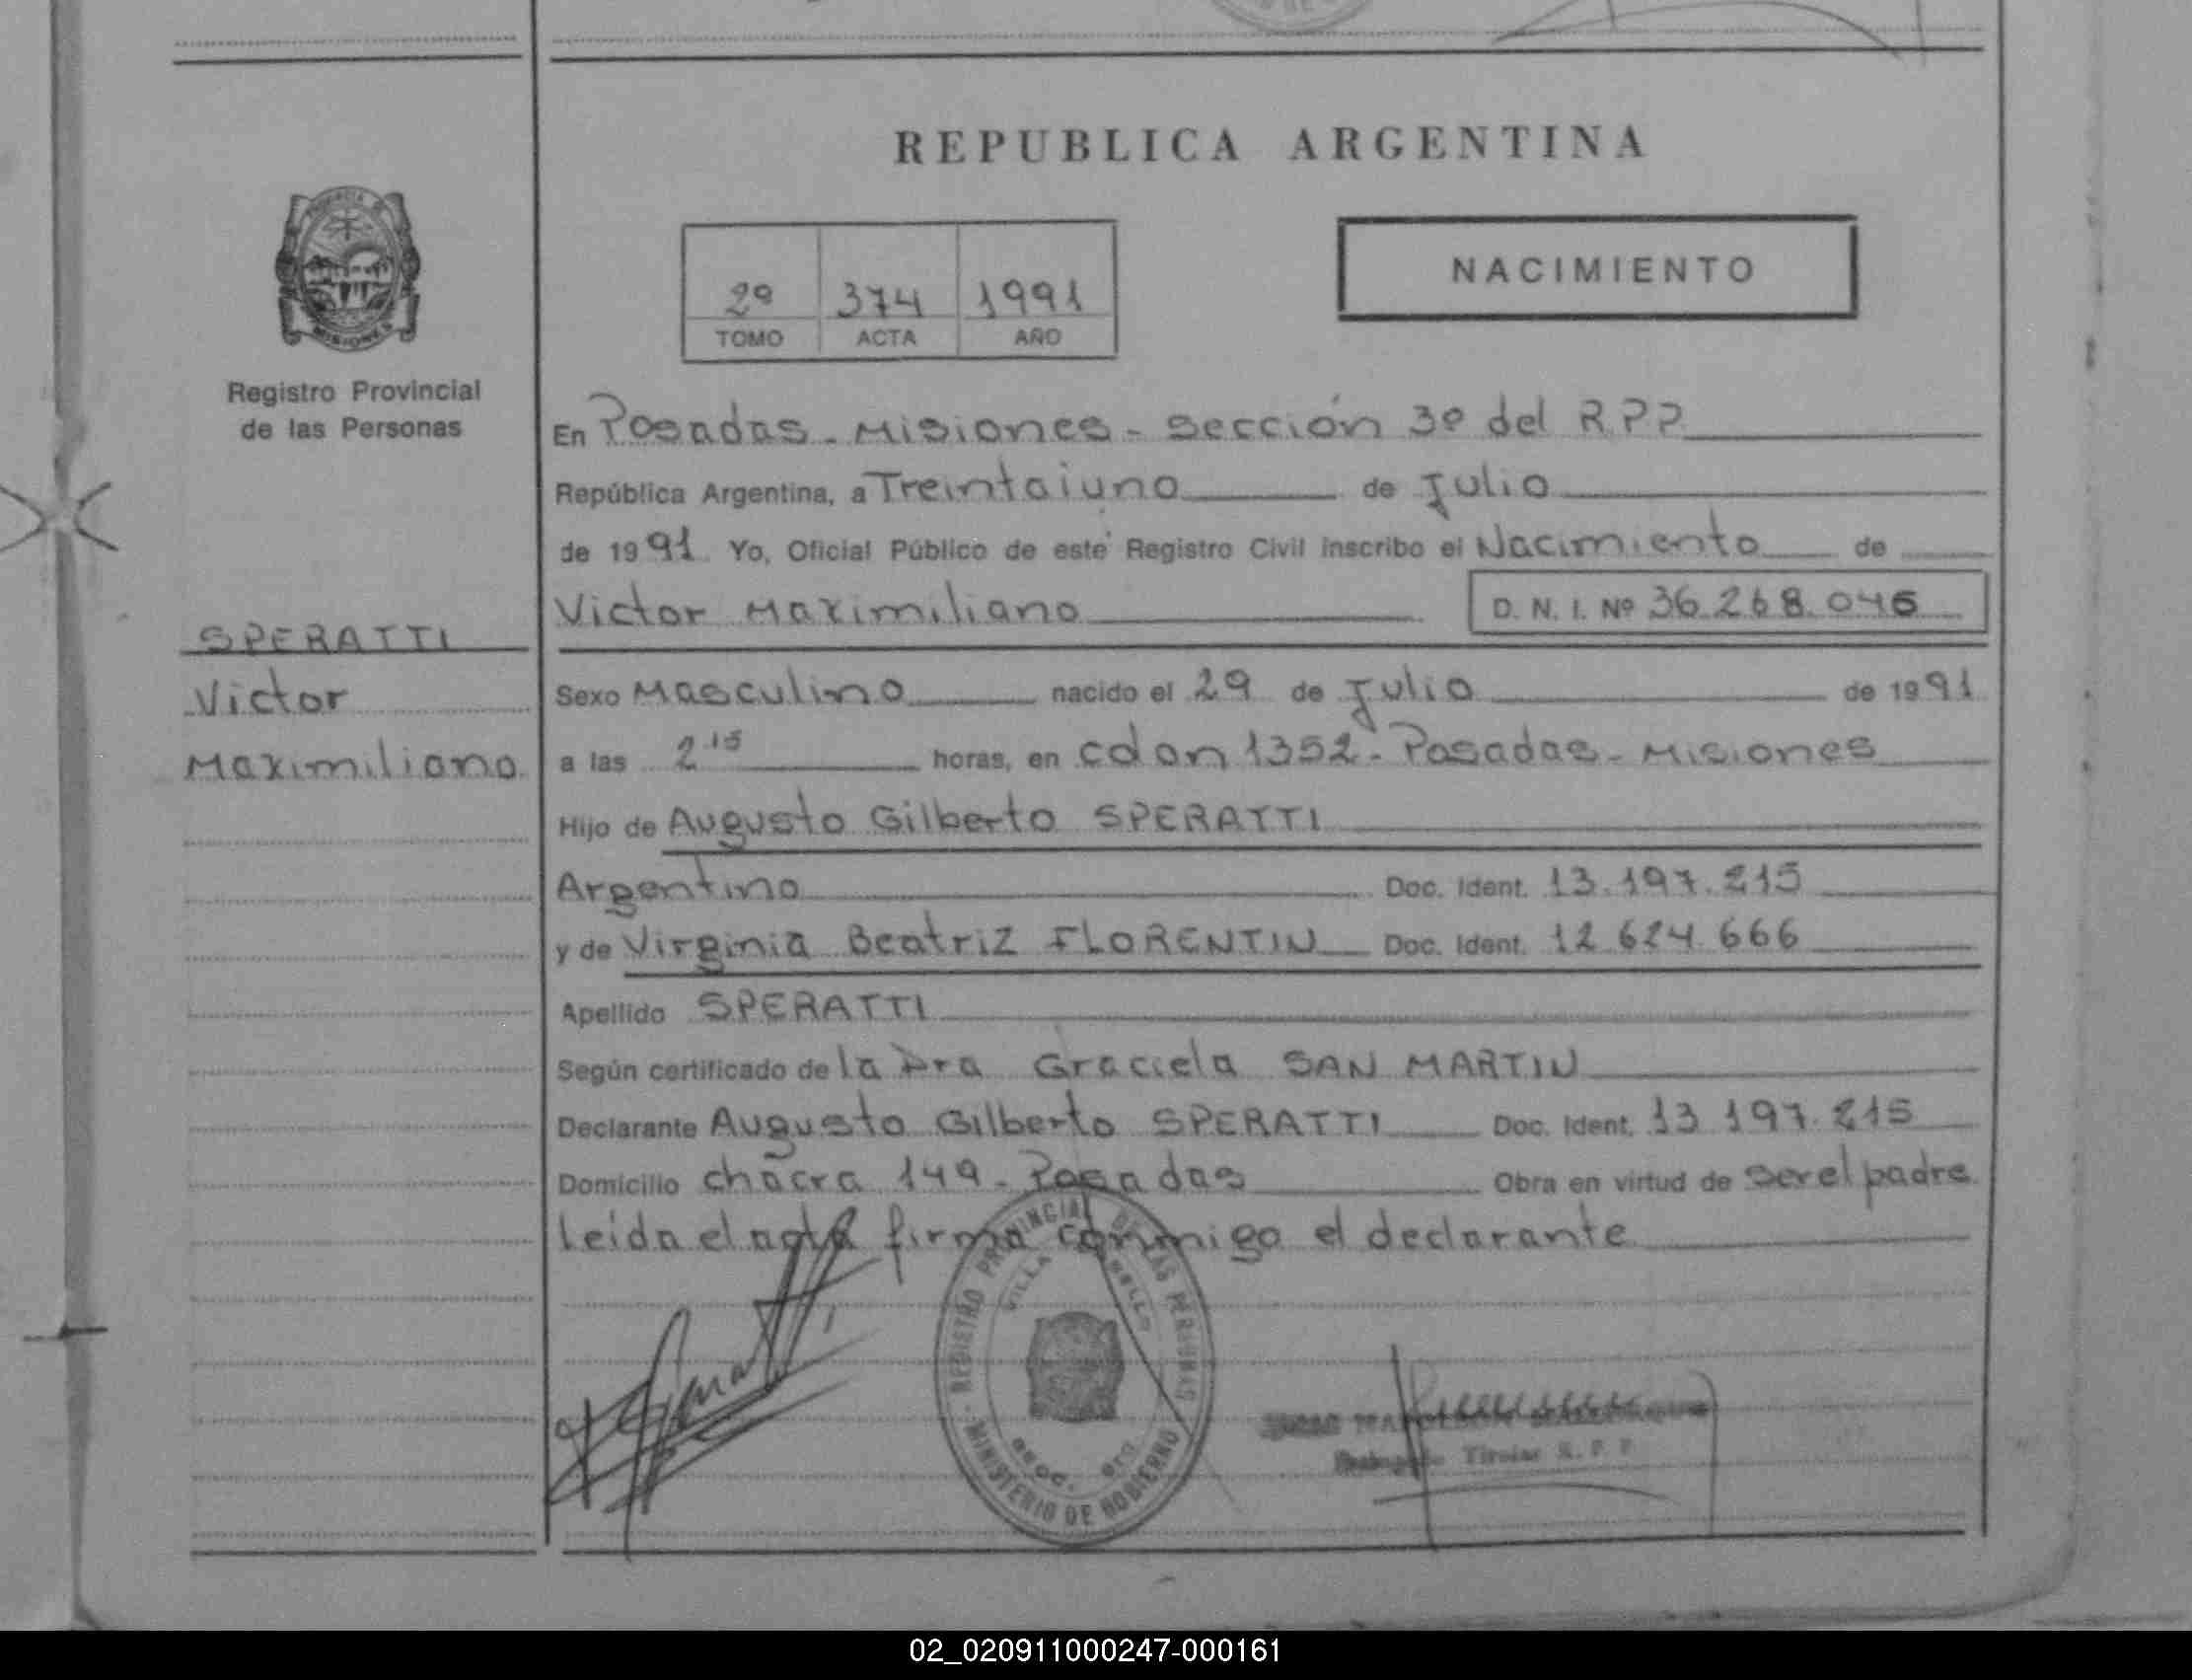 REPUBLICA ARGENTINA
PROVINCIA DE
MISIONES
Registro Provincial
de las Personas
2º 374 1991
TOMO ACTA AÑO
NACIMIENTO
En Posadas - Misiones - Sección 3º del R.P.P.
República Argentina, a Treintaiuno de Julio
de 1991 Yo, Oficial Público de este Registro Civil inscribo el Nacimiento de
Victor Maximiliano D. N. I. Nº 36.268.046
SPERATTI
Victor
Maximiliano
Sexo Masculino nacido el 29 de Julio de 1991
a las 2 15 horas, en Colon 1352 - Posadas - Misiones
Hijo de Augusto Gilberto SPERATTI
Argentino Doc. Ident. 13.197.215
y de Virginia Beatriz FLORENTIN Doc. Ident. 12.624.666
Apellido SPERATTI
Según certificado de la Dra Graciela SAN MARTIN
Declarante Augusto Gilberto SPERATTI Doc. Ident. 13.197.215
Domicilio chacra 149 - Posadas Obra en virtud de ser el padre
Leida el acta firma conmigo el declarante
REGISTRO PROVINCIAL DE LAS PERSONAS
VILLA
MINISTERIO DE GOBIERNO
Titular R. P. P.
02_020911000247-000161